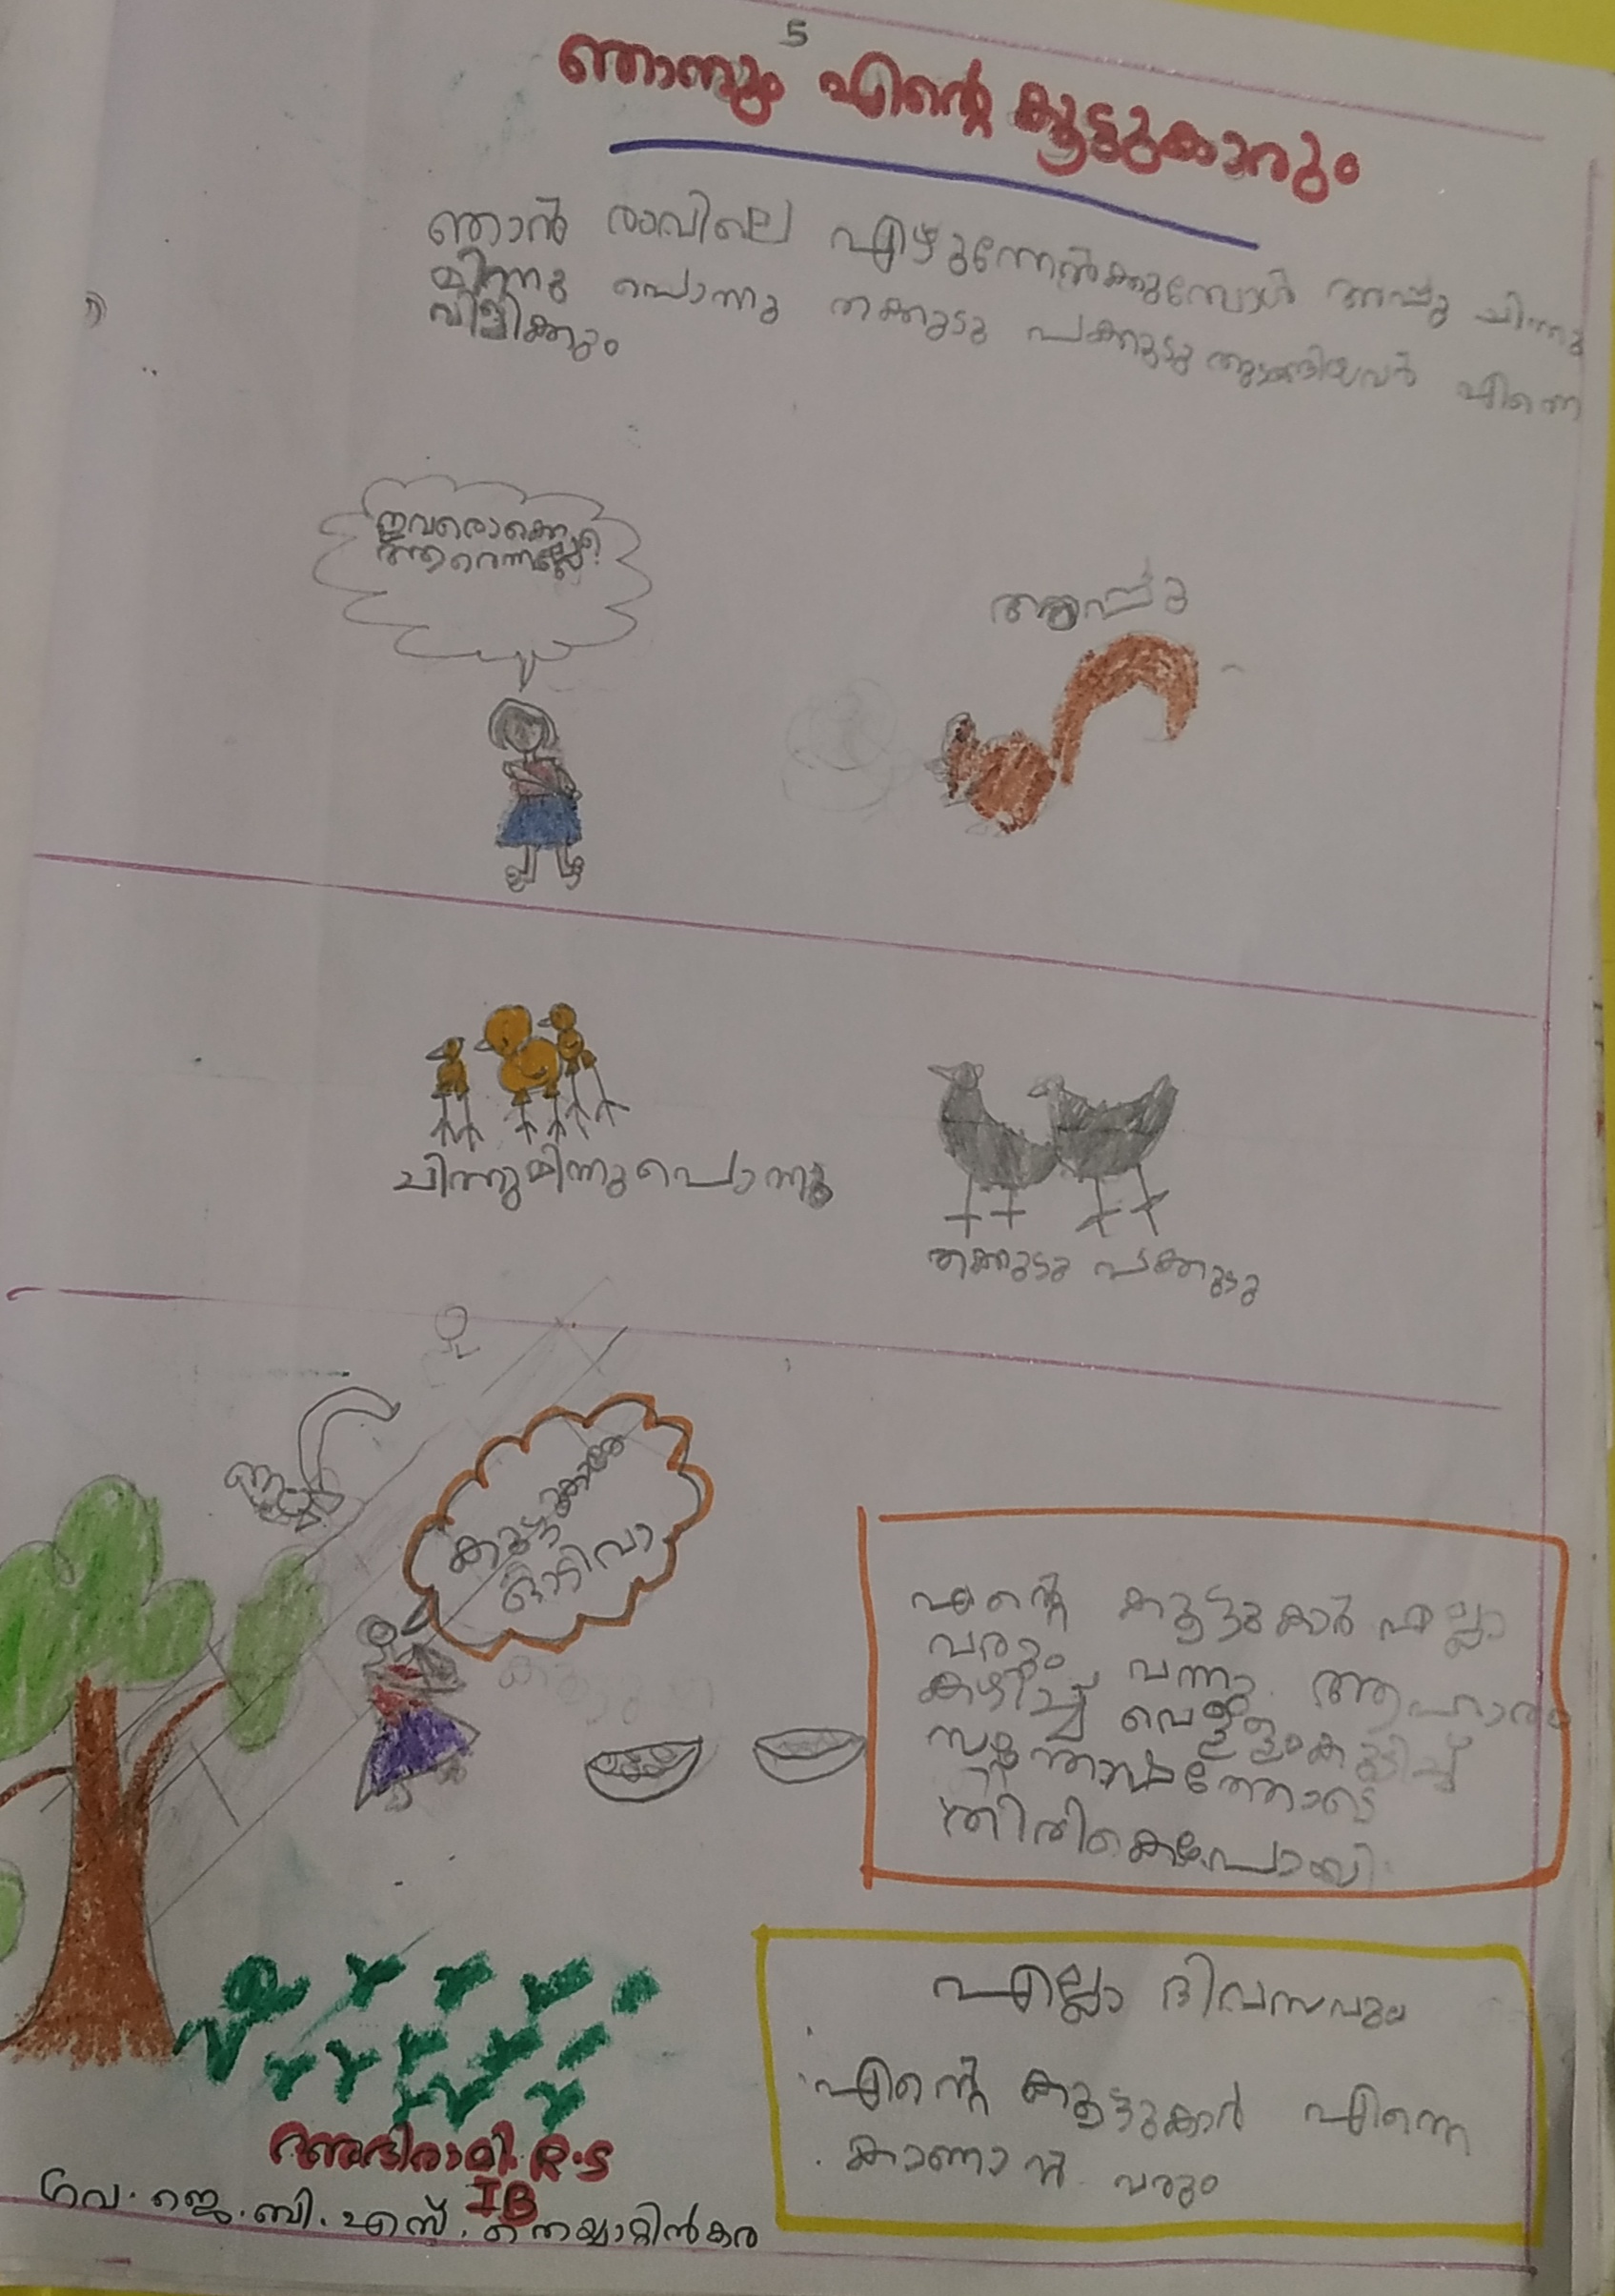 5
ഞാനും എന്റെ കൂട്ടുകാരും
ഞാൻ രാവിലെ എഴുന്നേൽക്കുമ്പോൾ അപ്പു ചിന്നു
മിന്നു പൊന്നു തക്കുടു പക്കുടു തുടങ്ങിയവർ എന്നെ
വിളിക്കും
ഇവരൊക്കെ
ആരെന്നല്ലേ?
അപ്പു
ചിന്നുമിന്നുപൊന്നു
തക്കുടു പക്കുടു
കൂട്ടുകാരെ
ഓടിവാ
എന്റെ കൂട്ടുകാർ എല്ലാ
വരും വന്നു ആഹാരം
കഴിച്ച് വെള്ളംകുടിച്ച്
സന്തോഷത്തോടെ
തിരികെപോയി
എല്ലാ ദിവസവും
എന്റെ കൂട്ടുകാർ എന്നെ
കാണാൻ വരും
അഭിരാമി. R.S
IB
ഗവ. ജെ.ബി.എസ്. നെയ്യാറ്റിൻകര